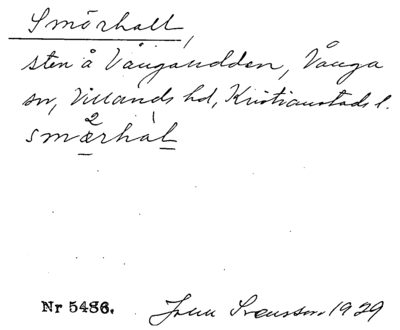 Smörhall,
sten å Vångaudden, Vånga
sn, Villands hd, Kristianstads l.
smærhàl
2
Nr 5486. John Svensson 1929